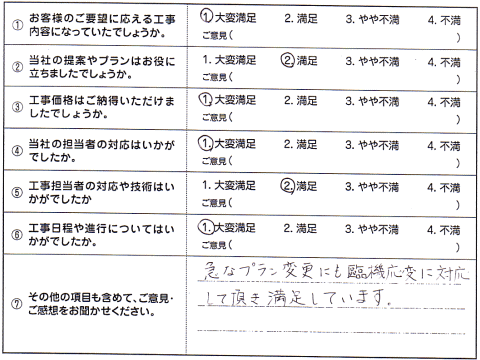 ① お客様のご要望に応える工事 ①.大変満足 2. 満足 3. やや不満 4. 不満
内容になっていたでしょうか。 ご意見( )
② 当社の提案やプランはお役に 1. 大変満足 ②.満足 3. やや不満 4. 不満
立ちましたでしょうか。 ご意見( )
③ 工事価格はご納得いただけま ①.大変満足 2. 満足 3. やや不満 4. 不満
したでしょうか。 ご意見( )
④ 当社の担当者の対応はいかが ①.大変満足 2. 満足 3. やや不満 4. 不満
でしたか。 ご意見( )
⑤ 工事担当者の対応や技術はい 1. 大変満足 ②.満足 3. やや不満 4. 不満
かがでしたか ご意見( )
⑥ 工事日程や進行についてはい ①.大変満足 2. 満足 3. やや不満 4. 不満
かがでしたか。 ご意見( )
⑦ その他の項目も含めて、ご意見・
ご感想をお聞かせください。
急なプラン変更にも臨機応変に対応
して頂き満足しています。